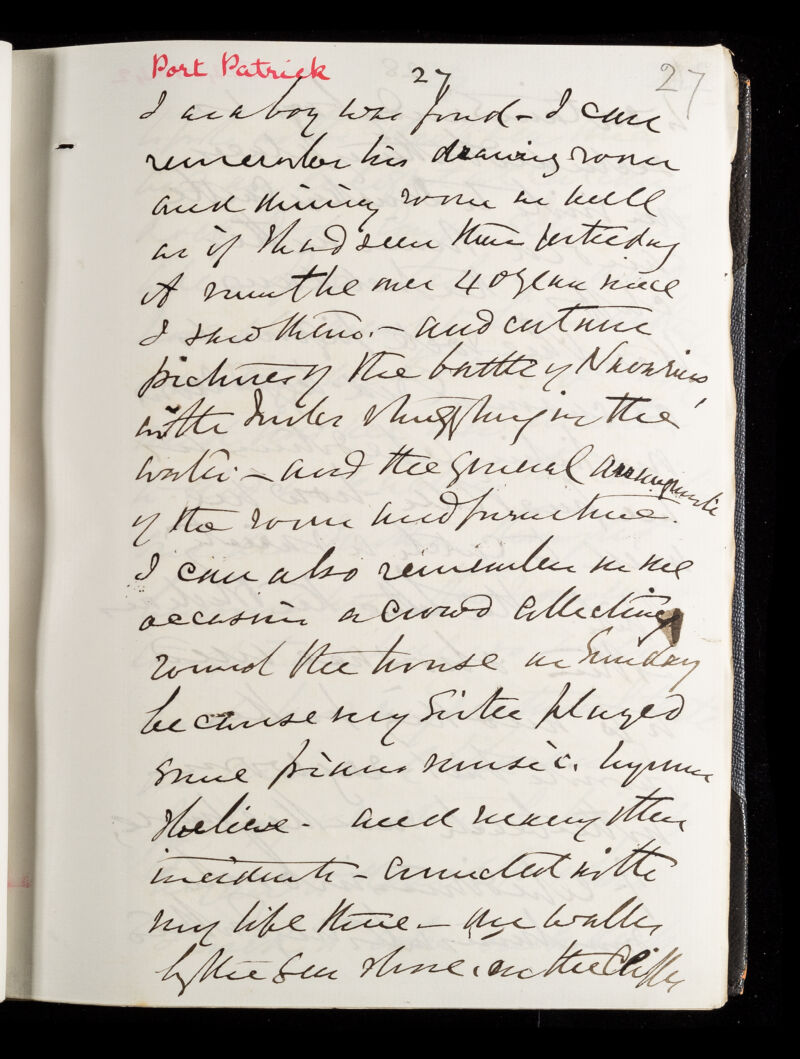 Port Patrick
27
27
I as a boy was fond - I can
remember his drawing room
and dining room as well
as if I had seen them yesterday
It must be over 40 years since
I saw them. - and certain
pictures of the battle of Navarino,
with Turks struggling in the
water. - and the general arrangements
of the room and furniture.
I can also remember on one
occasion a crowd collecting
round the house on Sunday
because my Sister played
some piano music. hymns
I believe - and many other
incidents - connected with
my life there - our walks
by the Sea shore, on the Cliffs